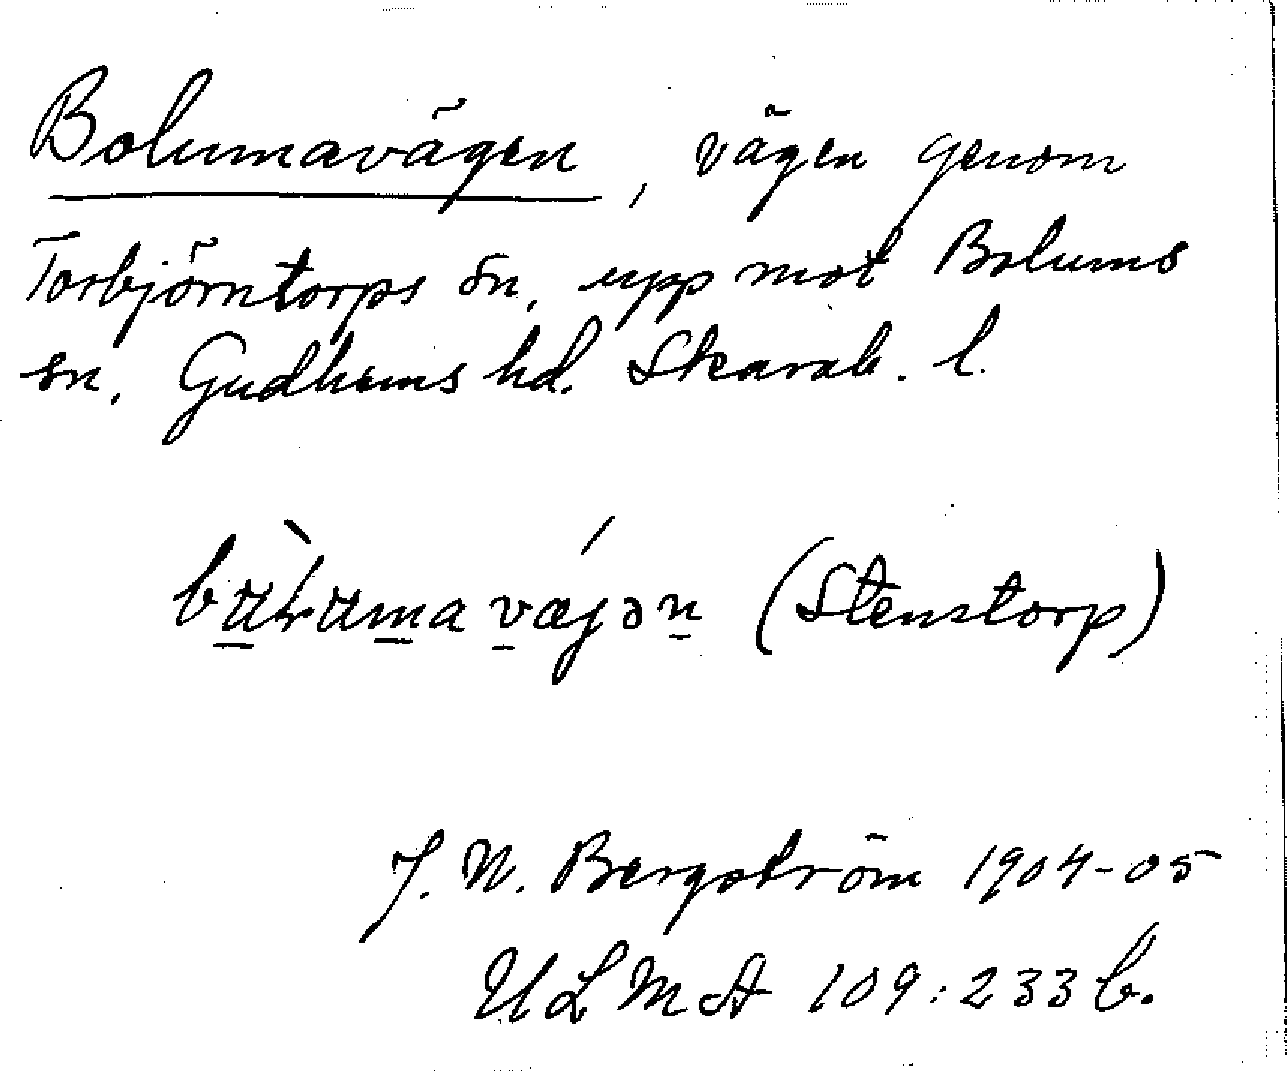 Bolumavägen, vägen genom
Torbjörntorps sn. upp mot Bolums
sn. Gudhems hd. Skarab. l.
(Stenstorp)
J. N. Bergström 1904-05
ULMA 109:233 b.